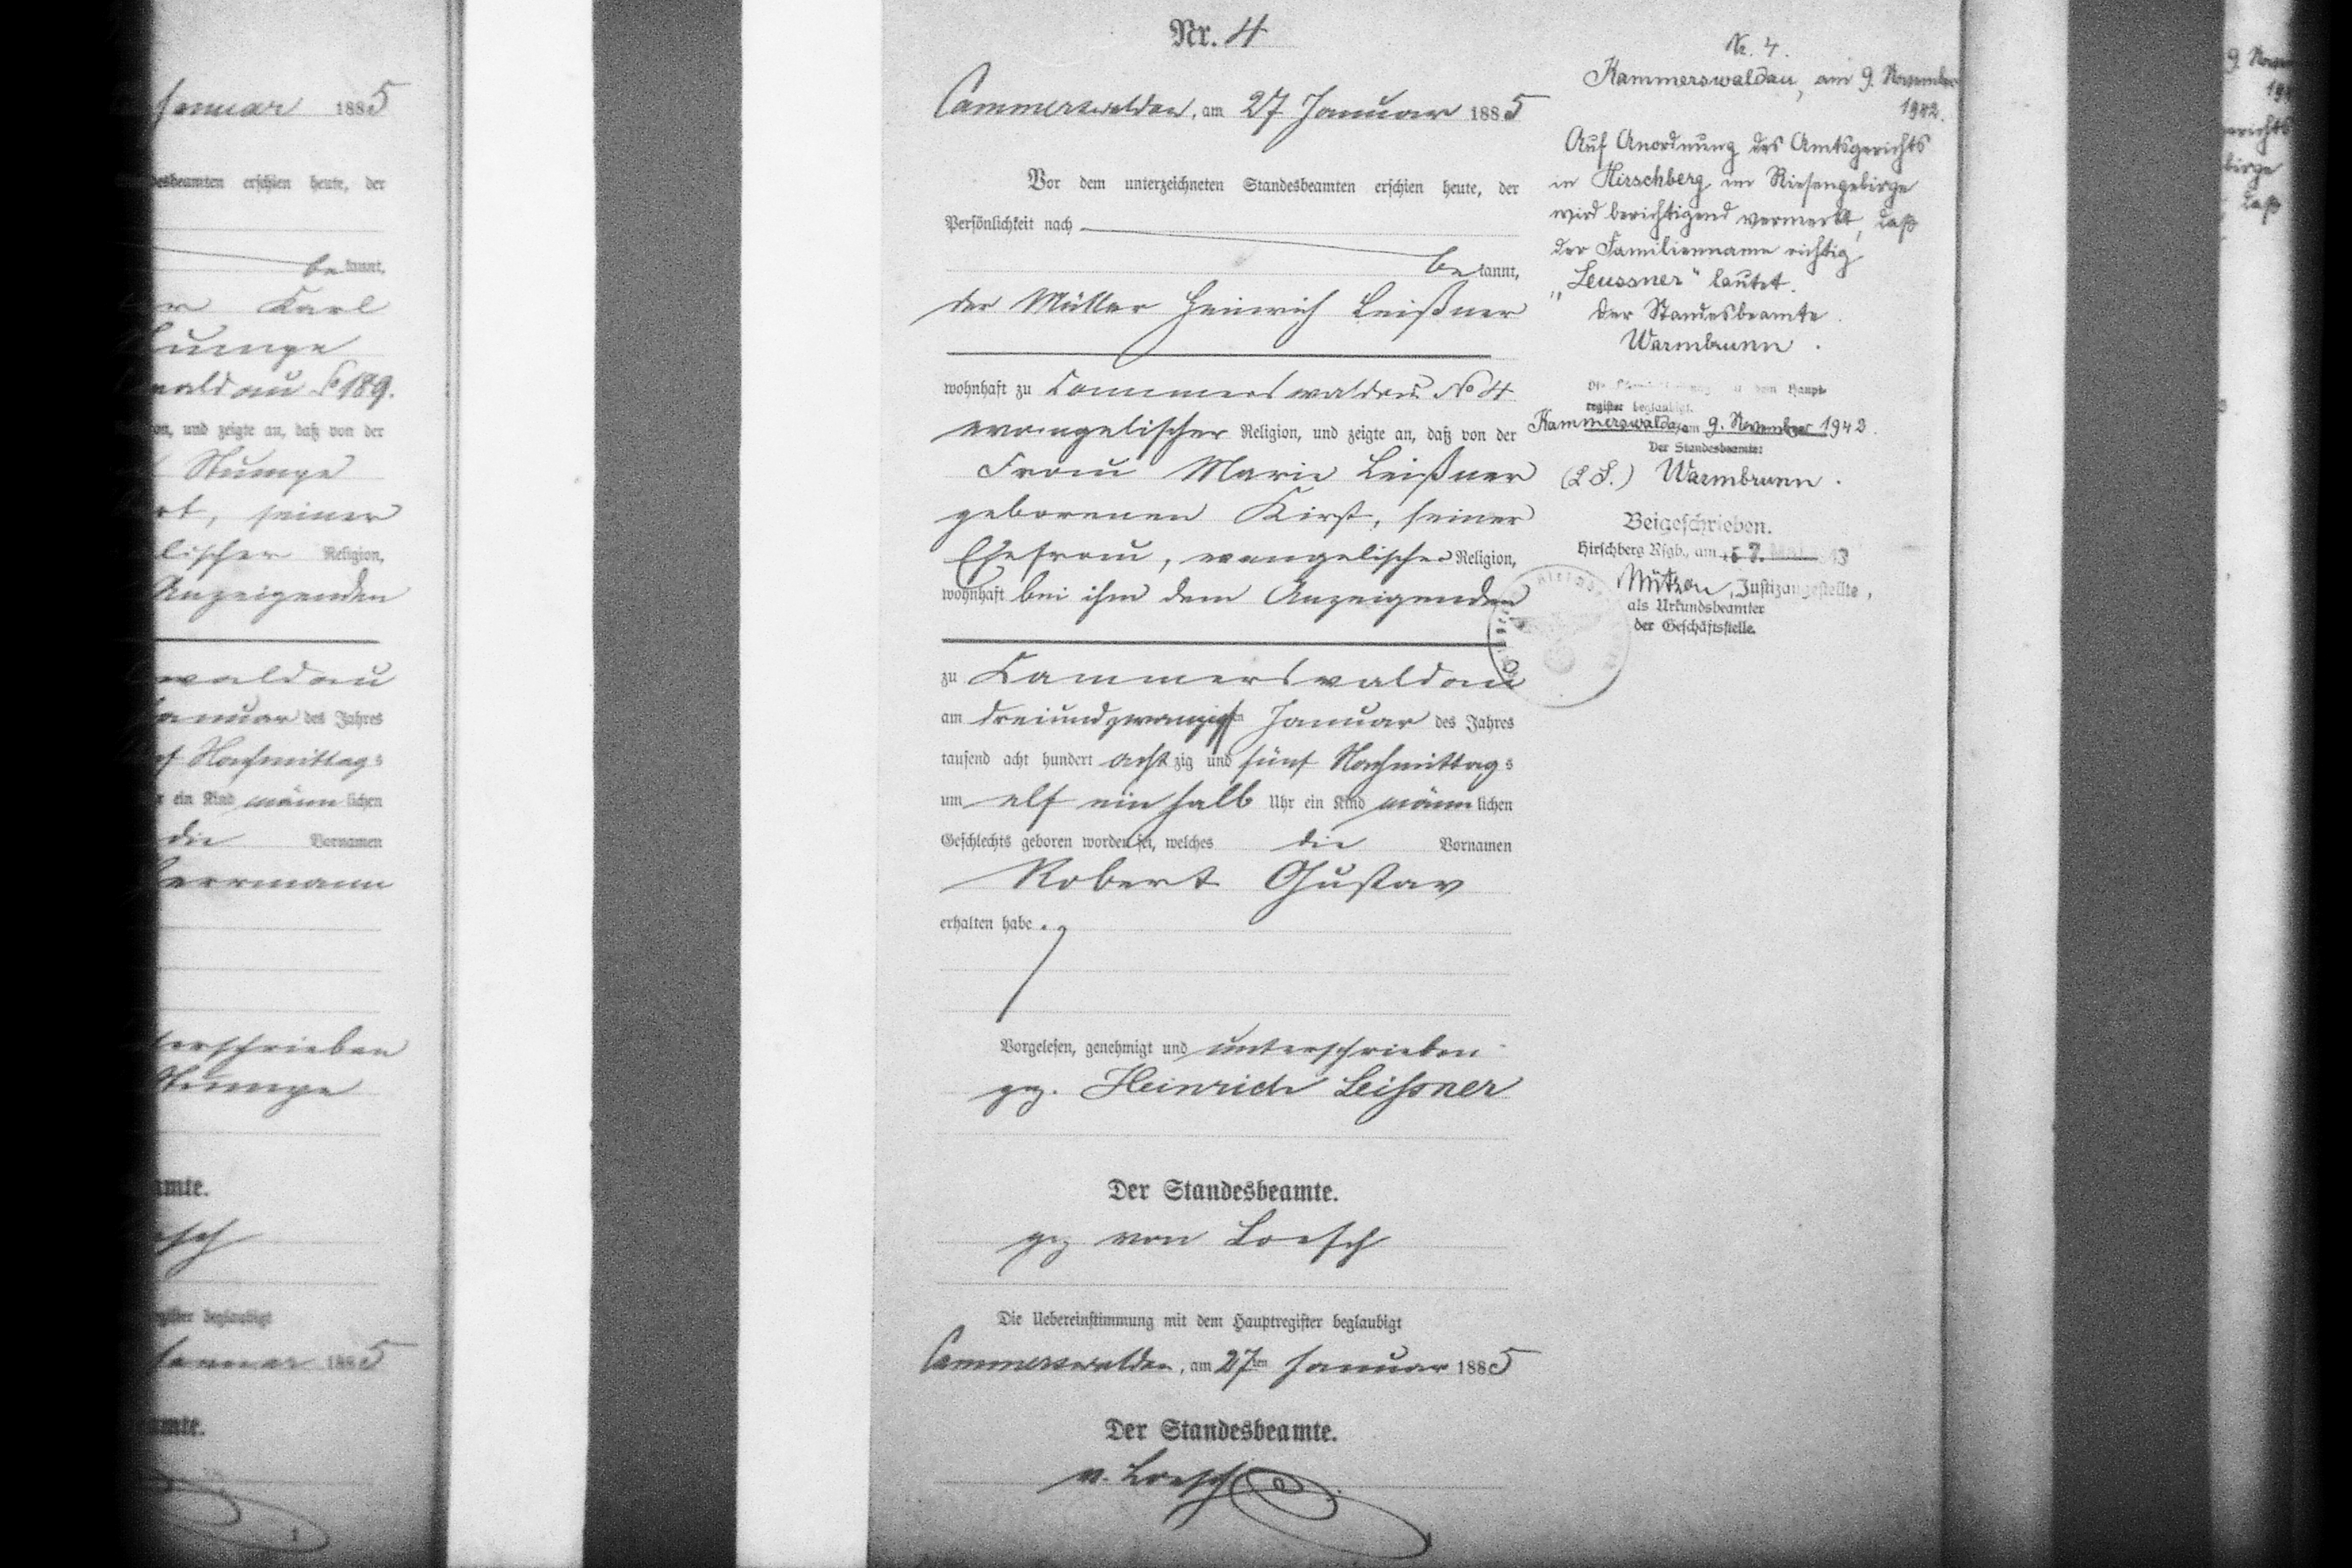 Januar 1885
desbeamten erschien heute, der
bekannt,
Karl
Stumpe
waldau No 189.
und zeigte an, daß von der
Stumpe
seiner
Religion,
Anzeigenden
waldau
Januar des Jahres
Nachmittags
ein Kind männlichen
die Vornamen
Herrmann
unterschrieben
Stumpe
register beglaubigt
Januar 1885
Nr. 4
Cammerswaldau, am 27 Januar 1885
Vor dem unterzeichneten Standesbeamten erschien heute, der
Persönlichkeit nach
bekannt,
der Müller Heinrich Leißner
wohnhaft zu Cammerswaldau No 4
evangelischer Religion, und zeigte an, daß von der
Frau Marie Leißner
geborenen Kirst, seiner
Ehefrau, evangelischer Religion,
wohnhaft bei ihm dem Anzeigenden
zu Cammerswaldau
am dreiundzwanzigsten Januar des Jahres
tausend acht hundert achtzig und fünf Nachmittags
um elf ein halb Uhr ein Kind männlichen
Geschlechts geboren worden sei, welches die Vornamen
Robert Gustav
erhalten habe.
Vorgelesen, genehmigt und unterschrieben
gez. Heinrich Leißner
Der Standesbeamte.
gez von Loesch
Die Uebereinstimmung mit dem Hauptregister beglaubigt
Cammerswaldau, am 27ten Januar 1885
Der Standesbeamte.
v. Loesch
Nr. 4.
Kammerswaldau, am 9. November
1942.
Auf Anordnung des Amtsgerichts
in Hirschberg im Riesengebirge
wird berichtigend vermerkt, daß
der Familienname richtig
„Leussner“ lautet.
Der Standesbeamte.
Warmbrunn.
dem Haupt-
register beglaubigt.
Kammerswaldau am 9. November 1942.
Der Standesbeamte:
(L. S.) Warmbrunn.
Beigeschrieben.
Hirschberg Rsgb., am 7. 43
Justizangestellte,
als Urkundsbeamter
der Geschäftsstelle.